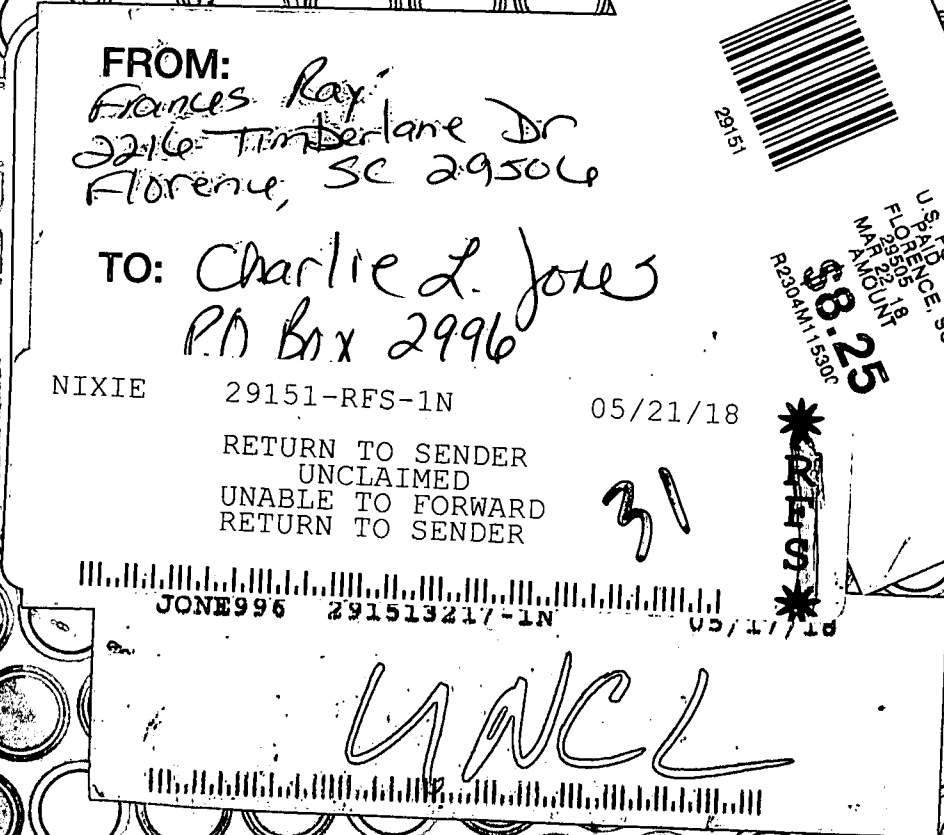 FROM:
Frances Ray
2216 Timberlane Dr
Florence, SC 29506
TO: Charlie L. Jones
P.O Box 2996
29151
U.S. P
PAID
FLORENCE, SC
29505
MAR 22, 18
AMOUNT
$8.25
R2304M11530
NIXIE 29151-RFS-1N 05/21/18
RETURN TO SENDER
UNCLAIMED
UNABLE TO FORWARD
RETURN TO SENDER
31
*RFS*
JONE996 291513217-1N 05/17/18
UNCL